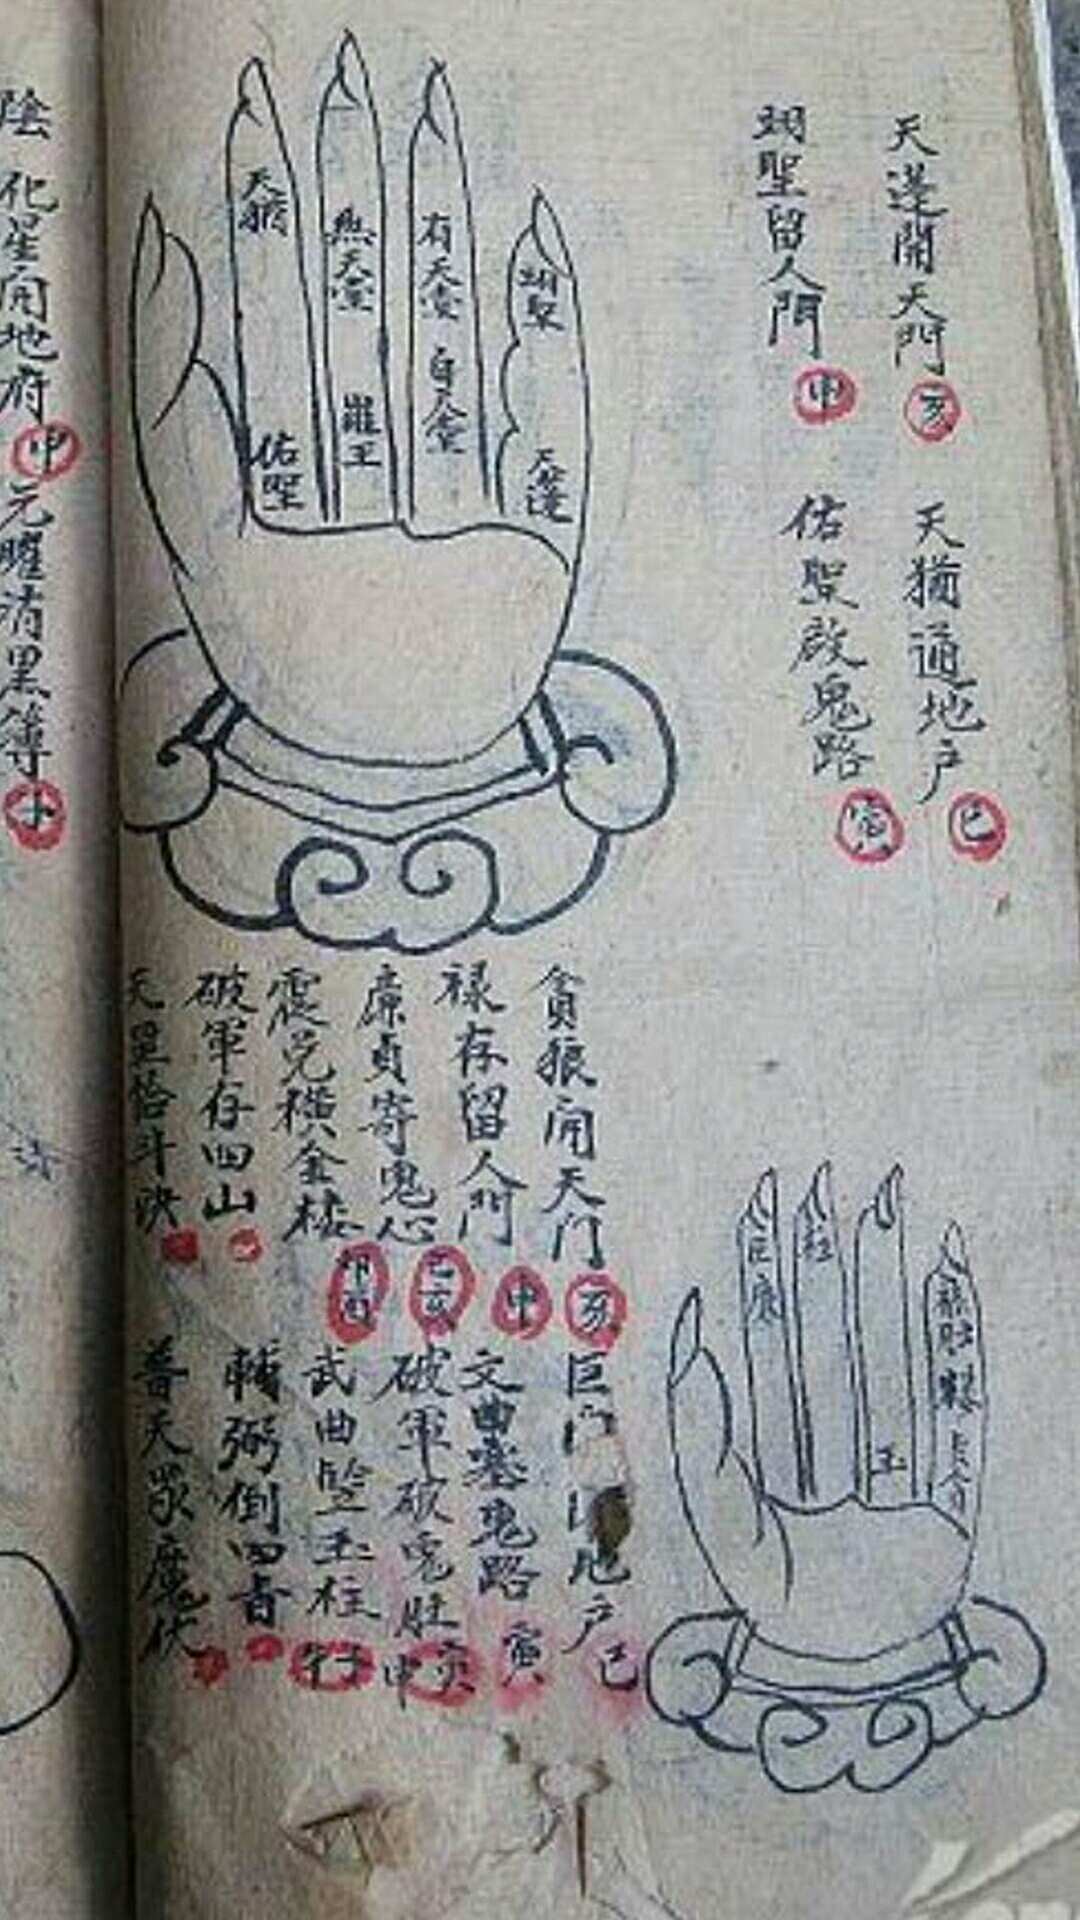 天蓬開天門 亥
天猶通地户 巳
翊聖留人門 申
佑聖啟鬼路 寅
翊聖
天蓬
有天
自天
天
羅王
天猶
佑聖
貪狼開天门 亥
巨门 地户 巳
禄存留人門 申
文曲塞鬼路 寅
廉貞寄鬼心 巳亥
破軍破鬼肚 寅申
震兑橫金樓 卯酉
武曲竖玉柱 子午
破軍存四山
輔弼倒四音
天罡恰斗
普天眾魔伏
巨
柱
玉
樓
陰
化星開地府 申
元曜消黑簿